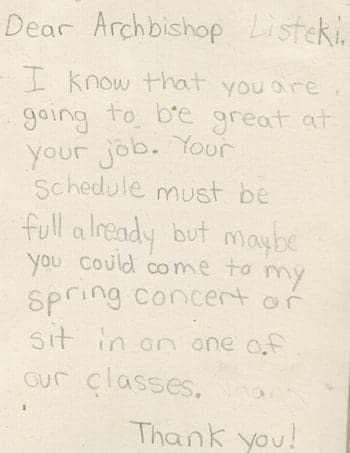 Dear Archbishop Listeki,
I know that you are
going to be great at
your job. Your
schedule must be
full already but maybe
you could come to my
spring concert or
sit in on one of
our classes.
Thank you!